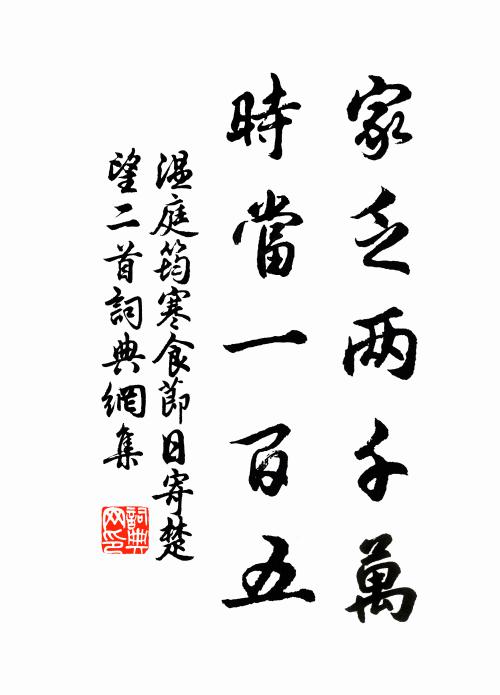 家乏两千萬
時當一百五
温庭筠寒食節日寄楚
望二首詞典網集
詞典
网印